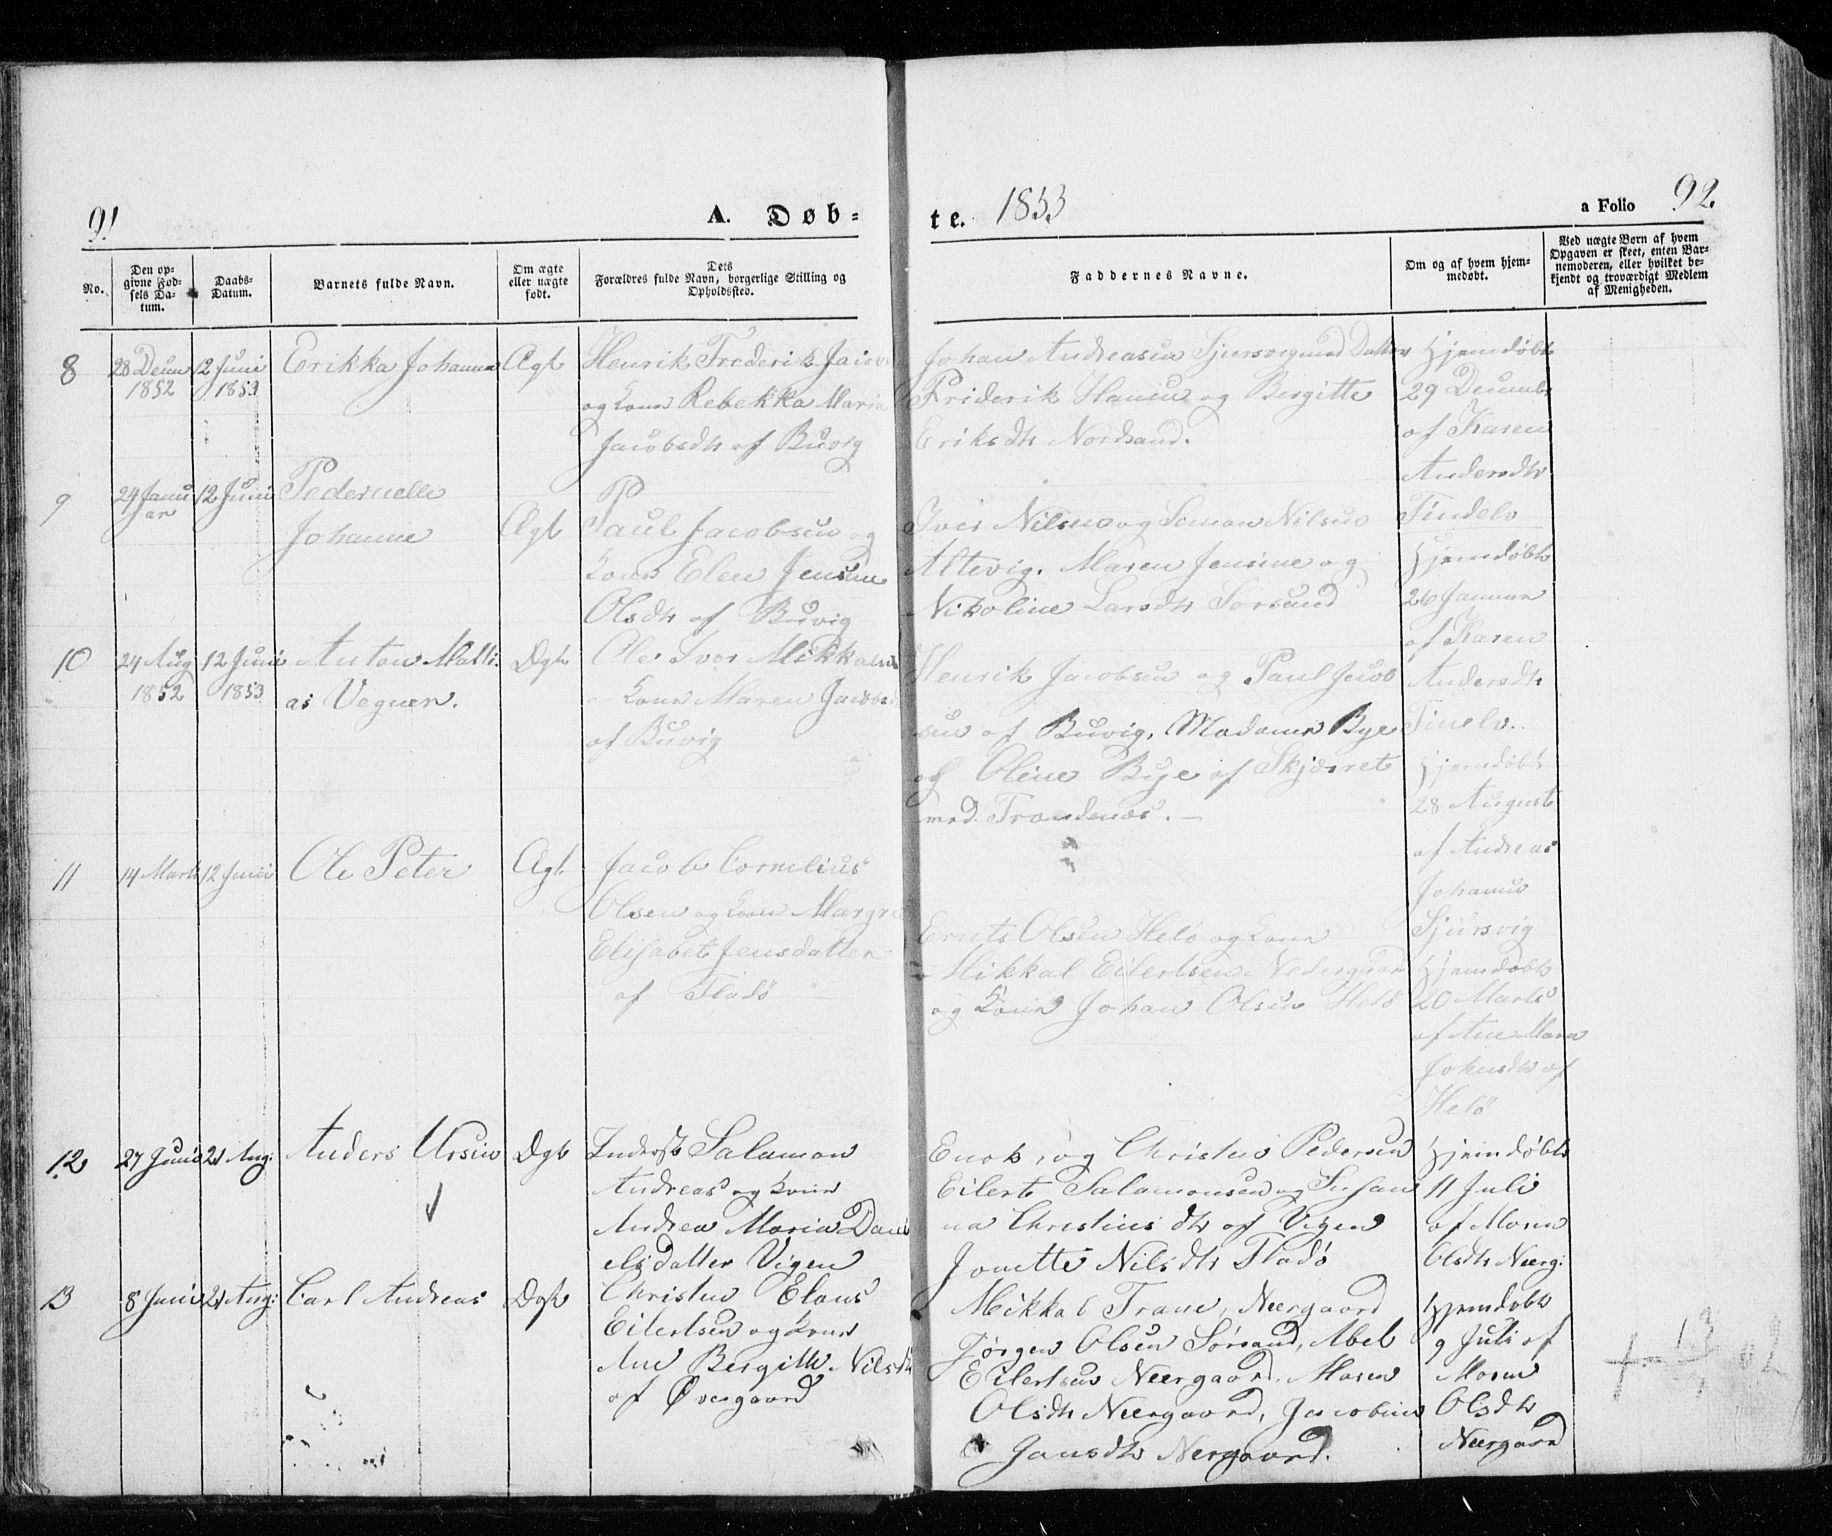 91
A. Døb=
te. 1853
a Folio 92.
No.
Den op-
givne Fød-
sels Da-
tum.
Daabs-
Datum.
Barnets fulde Navn.
Om ægte
eller uægte
født.
Dets
Forældres fulde Navn, borgerlige Stilling og
Opholdssted.
Faddernes Navne.
Om og af hvem hjem-
medøbt.
Ved uægte Børn af hvem
Opgaven er skeet, enten Bar-
nemoderen, eller hvilket be-
kjendt og troværdigt Medlem
af Menigheden.
8
28 Decm
1852
12 Juni
1853
Erikka Johanna
Ægt
Henrik Frederik Jacobs
og Kone Rebekka Maria
Jacobsdtr af Buvig
Johan Andreasen
Datter
Friderik Hansen og Bergitte
Eriksdtr Nordsand.
Hjemdøbt
29 Decembr
af Karen
Andersdtr
Tindelv
9
24 Janu
ar
12 Juni
Pedernelle
Johanne
Ægt
Paul Jacobsen og
Kone Elen Jensine
Olsdtr af Buvig
Iver Nilsen og Simon Nilsen
Altevig. Maren Jensine og
Nikoline Larsdtr Sørsand
Hjemdøbt
26 Januar
af Karen
Andersdtr
Tinelv.
10
24 Aug
1852
12 Juni
1853
Anton Matti
as Veguer.
Ægt
Ole Iver Mikkalsen
Kone Maren Jacobsd
af Buvig
Henrik Jacobsen og Paul Jacob
sen af Buvig. Madame Bye
og Oline Bye af Skjærret
med Trondenæs.
Hjemdøbt
28 August
af Andreas
Johannes
Sjursvig
11
14 Marts
12 Juni
Ole Peter
Ægt
Jacob Cornelius
Olsen og Kone Margre
Elisabet Jensdatter
af Fladø
Ernts Olsen Helø og Kone
Mikkal Eilertsen Nedergaard
og Kone Johan Olsen Helø
Hjemdøbt
20 Marts
af Ane Maria
Johnsdtr af
Helø
12
27 Juni
21 Aug:
Anders Ursin
Ægt
Inderst Salamon
Andreas og Kone
Andrea Maria Dani
elsdatter Vigen
Enok, og Christen Pedersen
Eilert Salamonsen og Susan
na Christensdtr af Vigen
Jonette Nilsdtr Fladø
Hjemdøbt
11 Juli
af Maren
Olsdtr Neerg:
13
8 Juni
21 Aug:
Carl Andreas
Ægt
Christen Elous
Eilertsen og Kone
Ane Bergitte Nilsdtr
af Øvergaard
Mikkal Trane, Neergaard
Jørgen Olsen Sørsand, Abel
Eilertsen Neergaard. Maren
Olsdtr Neergaard, Jacobine
Jansdtr Nergaard.
Hjemdøbt
9 Juli af
Maren
Olsdtr
Neergaard